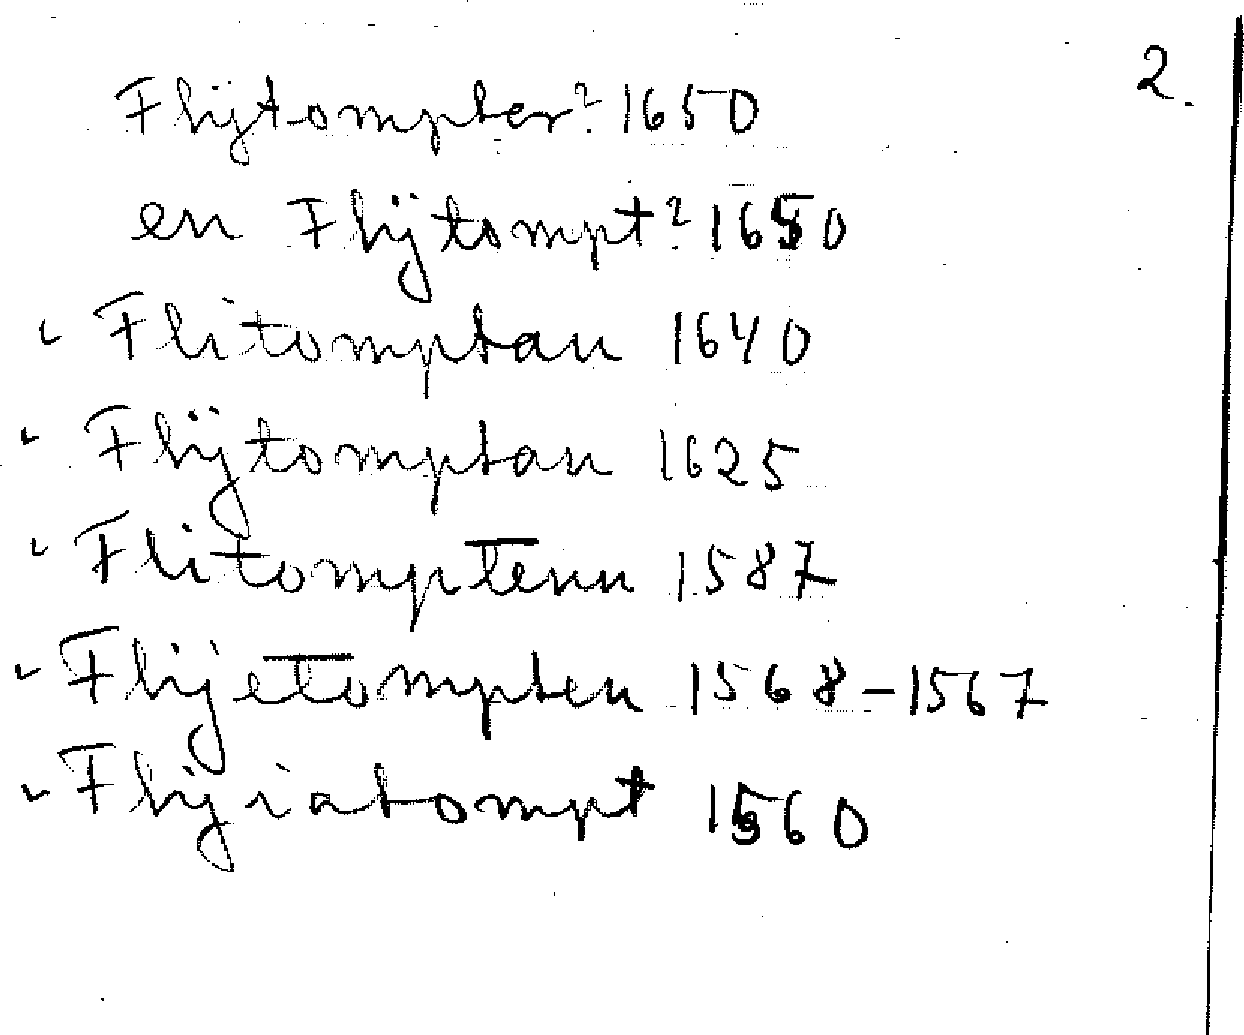 2.
Flijtompter? 1650
en Flijtompt? 1650
Flitomptan 1640
Flijtomptan 1625
Flitomptenn 1587
Flijetompten 1568-1567
Flijiatompt 1560